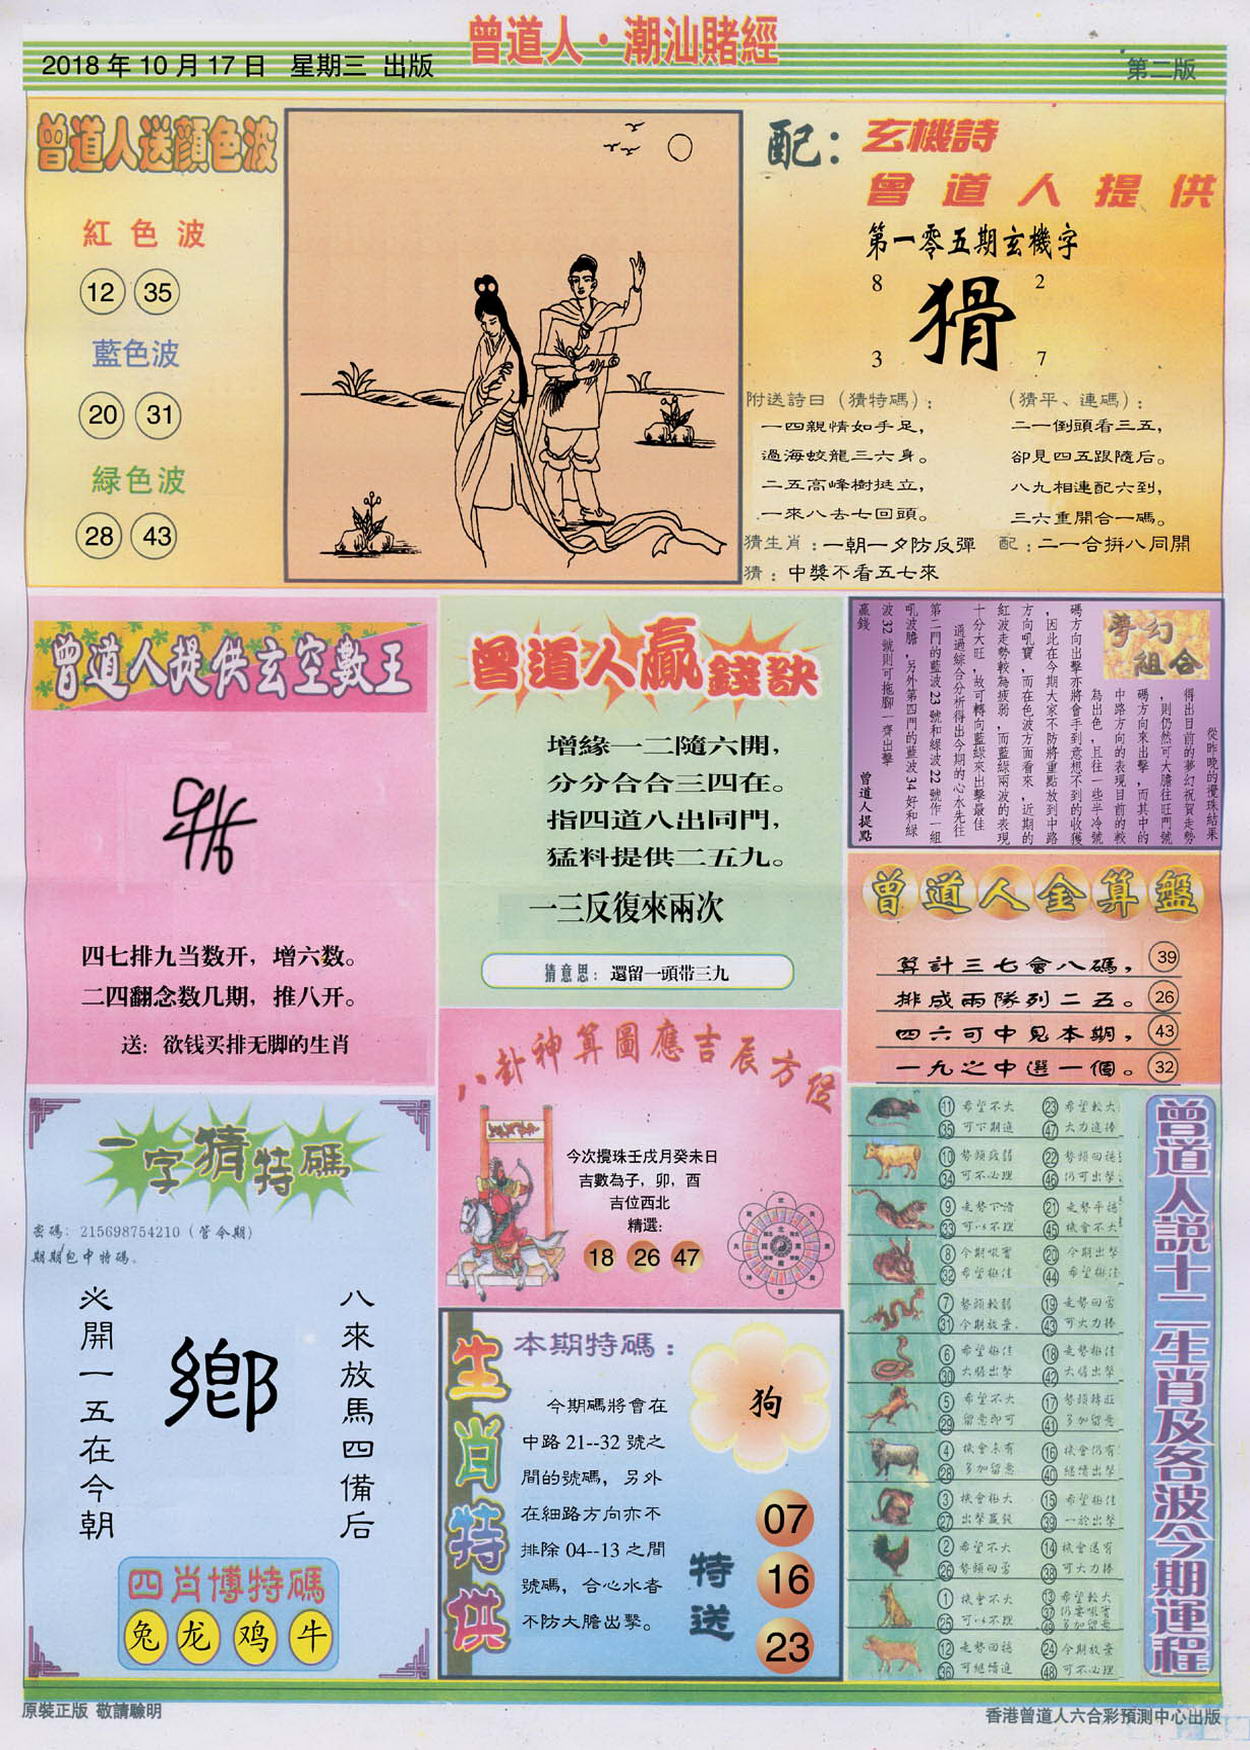 曾道人·潮汕賭經
2018年10月17日 星期三 出版
第二版
曾道人送顏色波
紅色波
12 35
藍色波
20 31
緑色波
28 43
配：玄機詩
曾道人提供
第一零五期玄機字
8 2
猾
3 7
附送詩曰（猜特碼）：
一四親情如手足，
過海蛟龍三六身。
二五高峰樹挺立，
一來八去七回頭。
（猜平、連碼）：
二一倒頭看三五，
卻見四五跟隨后。
八九相連配六到，
三六重開合一碼。
猜生肖：一朝一夕防反彈 配：二一合拼八同開
猜：中獎不看五七來
曾道人提供玄空數王
四七排九当数开，增六数。
二四翻念数几期，推八开。
送：欲钱买排无脚的生肖
曾道人贏錢訣
增緣一二隨六開，
分分合合三四在。
指四道八出同門，
猛料提供二五九。
一三反復來兩次
猜意思：還留一頭带三九
夢幻組合
從昨晚的攪珠結果
得出目前的夢幻祝賀走勢
，則仍然可大膽往旺門號
碼方向來出擊，而其中的
中路方向的表現目前的較
為出色，且往一些半冷號
碼方向出擊亦將會手到意想不到的收獲
，因此在今期大家不防將重點放到中路
方向吼寶，而在色波方面看來，近期的
紅波走勢較為疲弱，而藍綠兩波的表現
十分大旺，故可轉向藍綠來出擊最佳
通過綜合分析得出今期的心水先往
第二門的藍波23號和綠波22號作一組
吼波膽，另外第四門的藍波34好和綠
波32號則可拖腳一齊出擊
贏錢
曾道人提點
曾道人金算盤
算計三七會八碼， 39
排成兩隊列二五。 26
四六可中見本期， 43
一九之中選一個。 32
一字猜特碼
密碼：215698754210（管今期）
期期包中特碼。
八來放馬四備后
鄉
米開一五在今朝
四肖博特碼
兔 龙 鸡 牛
八卦神算圖應吉辰方位
今次攪珠壬戌月癸未日
吉數為子，卯，酉
吉位西北
精選：
18 26 47
生肖特供
本期特碼：
狗
今期碼將會在
中路21--32號之
間的號碼，另外
在細路方向亦不
排除04--13之間
號碼，合心水者
不防大膽出擊。
特送
07
16
23
曾道人説十二生肖及各波今期運程
11 希望不大 23 希望較大
35 可下期追 47 大力追捧
10 勢頭疲弱 22 勢頭回穩
34 可不必理 46 仍可出擊
9 走勢不清 21 走勢平穩
33 可以不理 45 機會不大
8 今期吼實 20 今期出擊
32 希望極佳 44 希望極佳
7 勢頭較弱 19 走勢回雲
31 今期放棄 43 可大力捧
6 希望極佳 18 走勢極佳
30 大膽出擊 42 大膽出擊
5 希望不大 17 勢頭轉旺
29 留意即可 41 多加留意
4 機會未有 16 機會仍有
28 多加留意 40 繼續出擊
3 機會極大 15 希望極佳
27 出擊贏錢 39 一於出擊
2 希望不大 14 機會還有
26 勢頭回雲 38 可大力捧
1 機會不大 13 希望較大
25 可以不理 37 仍要吼實
49 多加留意
12 走勢回穩 24 今期放棄
36 可繼續追 48 可不必理
原裝正版 敬請驗明
香港曾道人六合彩預測中心出版